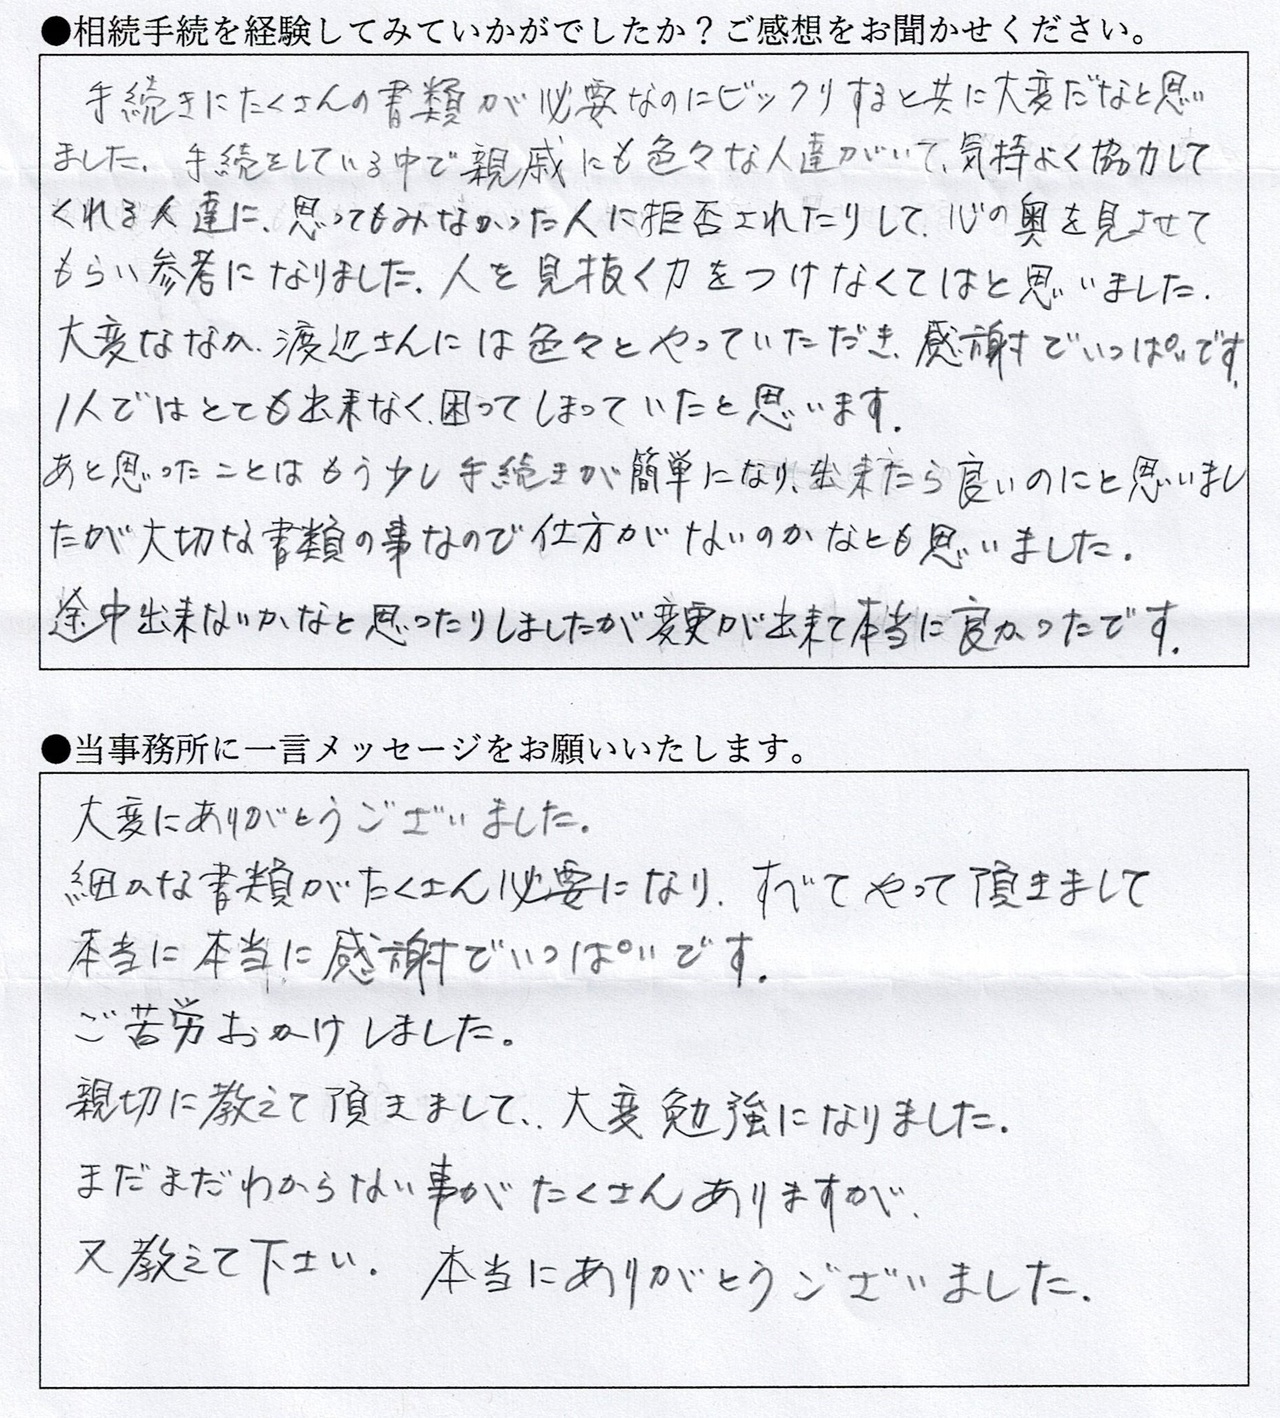 ●相続手続を経験してみていかがでしたか？ご感想をお聞かせください。
手続きにたくさんの書類が必要なのにビックリすると共に大変だなと思い
ました。手続をしている中で親戚にも色々な人達がいて、気持よく協力して
くれる人達に、思ってもみなかった人に拒否されたりして、心の奥を見させて
もらい参考になりました。人を見抜く力をつけなくてはと思いました。
大変ななか、渡辺さんには色々とやっていただき、感謝でいっぱいです。
1人ではとても出来なく、困ってしまっていたと思います。
あと思ったことはもう少し手続きが簡単になり、出来たら良いのにと思いまし
たが大切な書類の事なので仕方がないのかなとも思いました。
途中出来ないかなと思ったりしましたが変更が出来て本当に良かったです。
●当事務所に一言メッセージをお願いいたします。
大変にありがとうございました。
細かな書類がたくさん必要になり、すべてやって頂きまして
本当に本当に感謝でいっぱいです。
ご苦労おかけしました。
親切に教えて頂きまして、大変勉強になりました。
まだまだわからない事がたくさんありますが、
又教えて下さい。本当にありがとうございました。